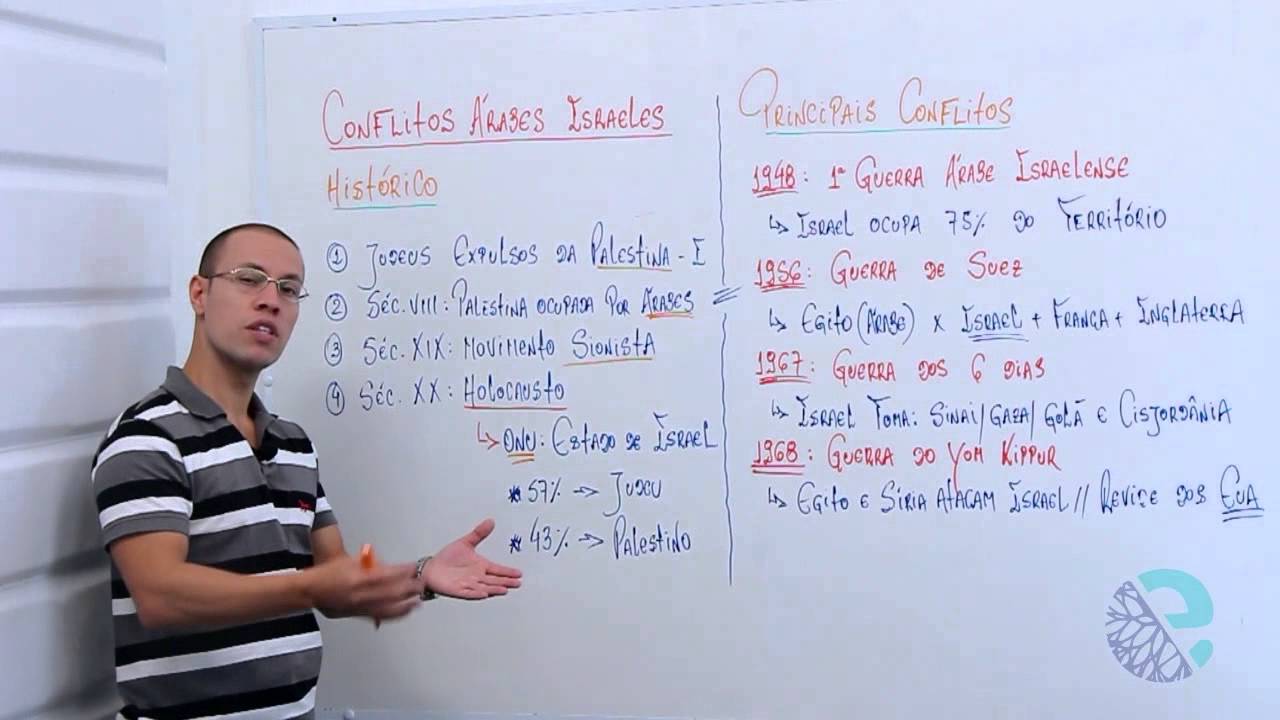 CONFLITOS ÁRABES ISRAELES
HISTÓRICO
① JUDEUS EXPULSOS DA PALESTINA - I
② SÉC. VIII: PALESTINA OCUPADA POR ÁRABES
③ SÉC. XIX: MOVIMENTO SIONISTA
④ SÉC. XX: HOLOCAUSTO
↳ ONU: ESTADO DE ISRAEL
* 57% → JUDEU
* 43% → PALESTINO
PRINCIPAIS CONFLITOS
1948: 1ª GUERRA ÁRABE ISRAELENSE
↳ ISRAEL OCUPA 75% DO TERRITÓRIO
1956: GUERRA DE SUEZ
↳ EGITO (ÁRABE) X ISRAEL + FRANÇA + INGLATERRA
1967: GUERRA DOS 6 DIAS
↳ ISRAEL TOMA: SINAI/GAZA/GOLÃ E CISJORDÂNIA
1968: GUERRA DO YOM KIPPUR
↳ EGITO E SÍRIA ATACAM ISRAEL // REVIDE DOS EUA